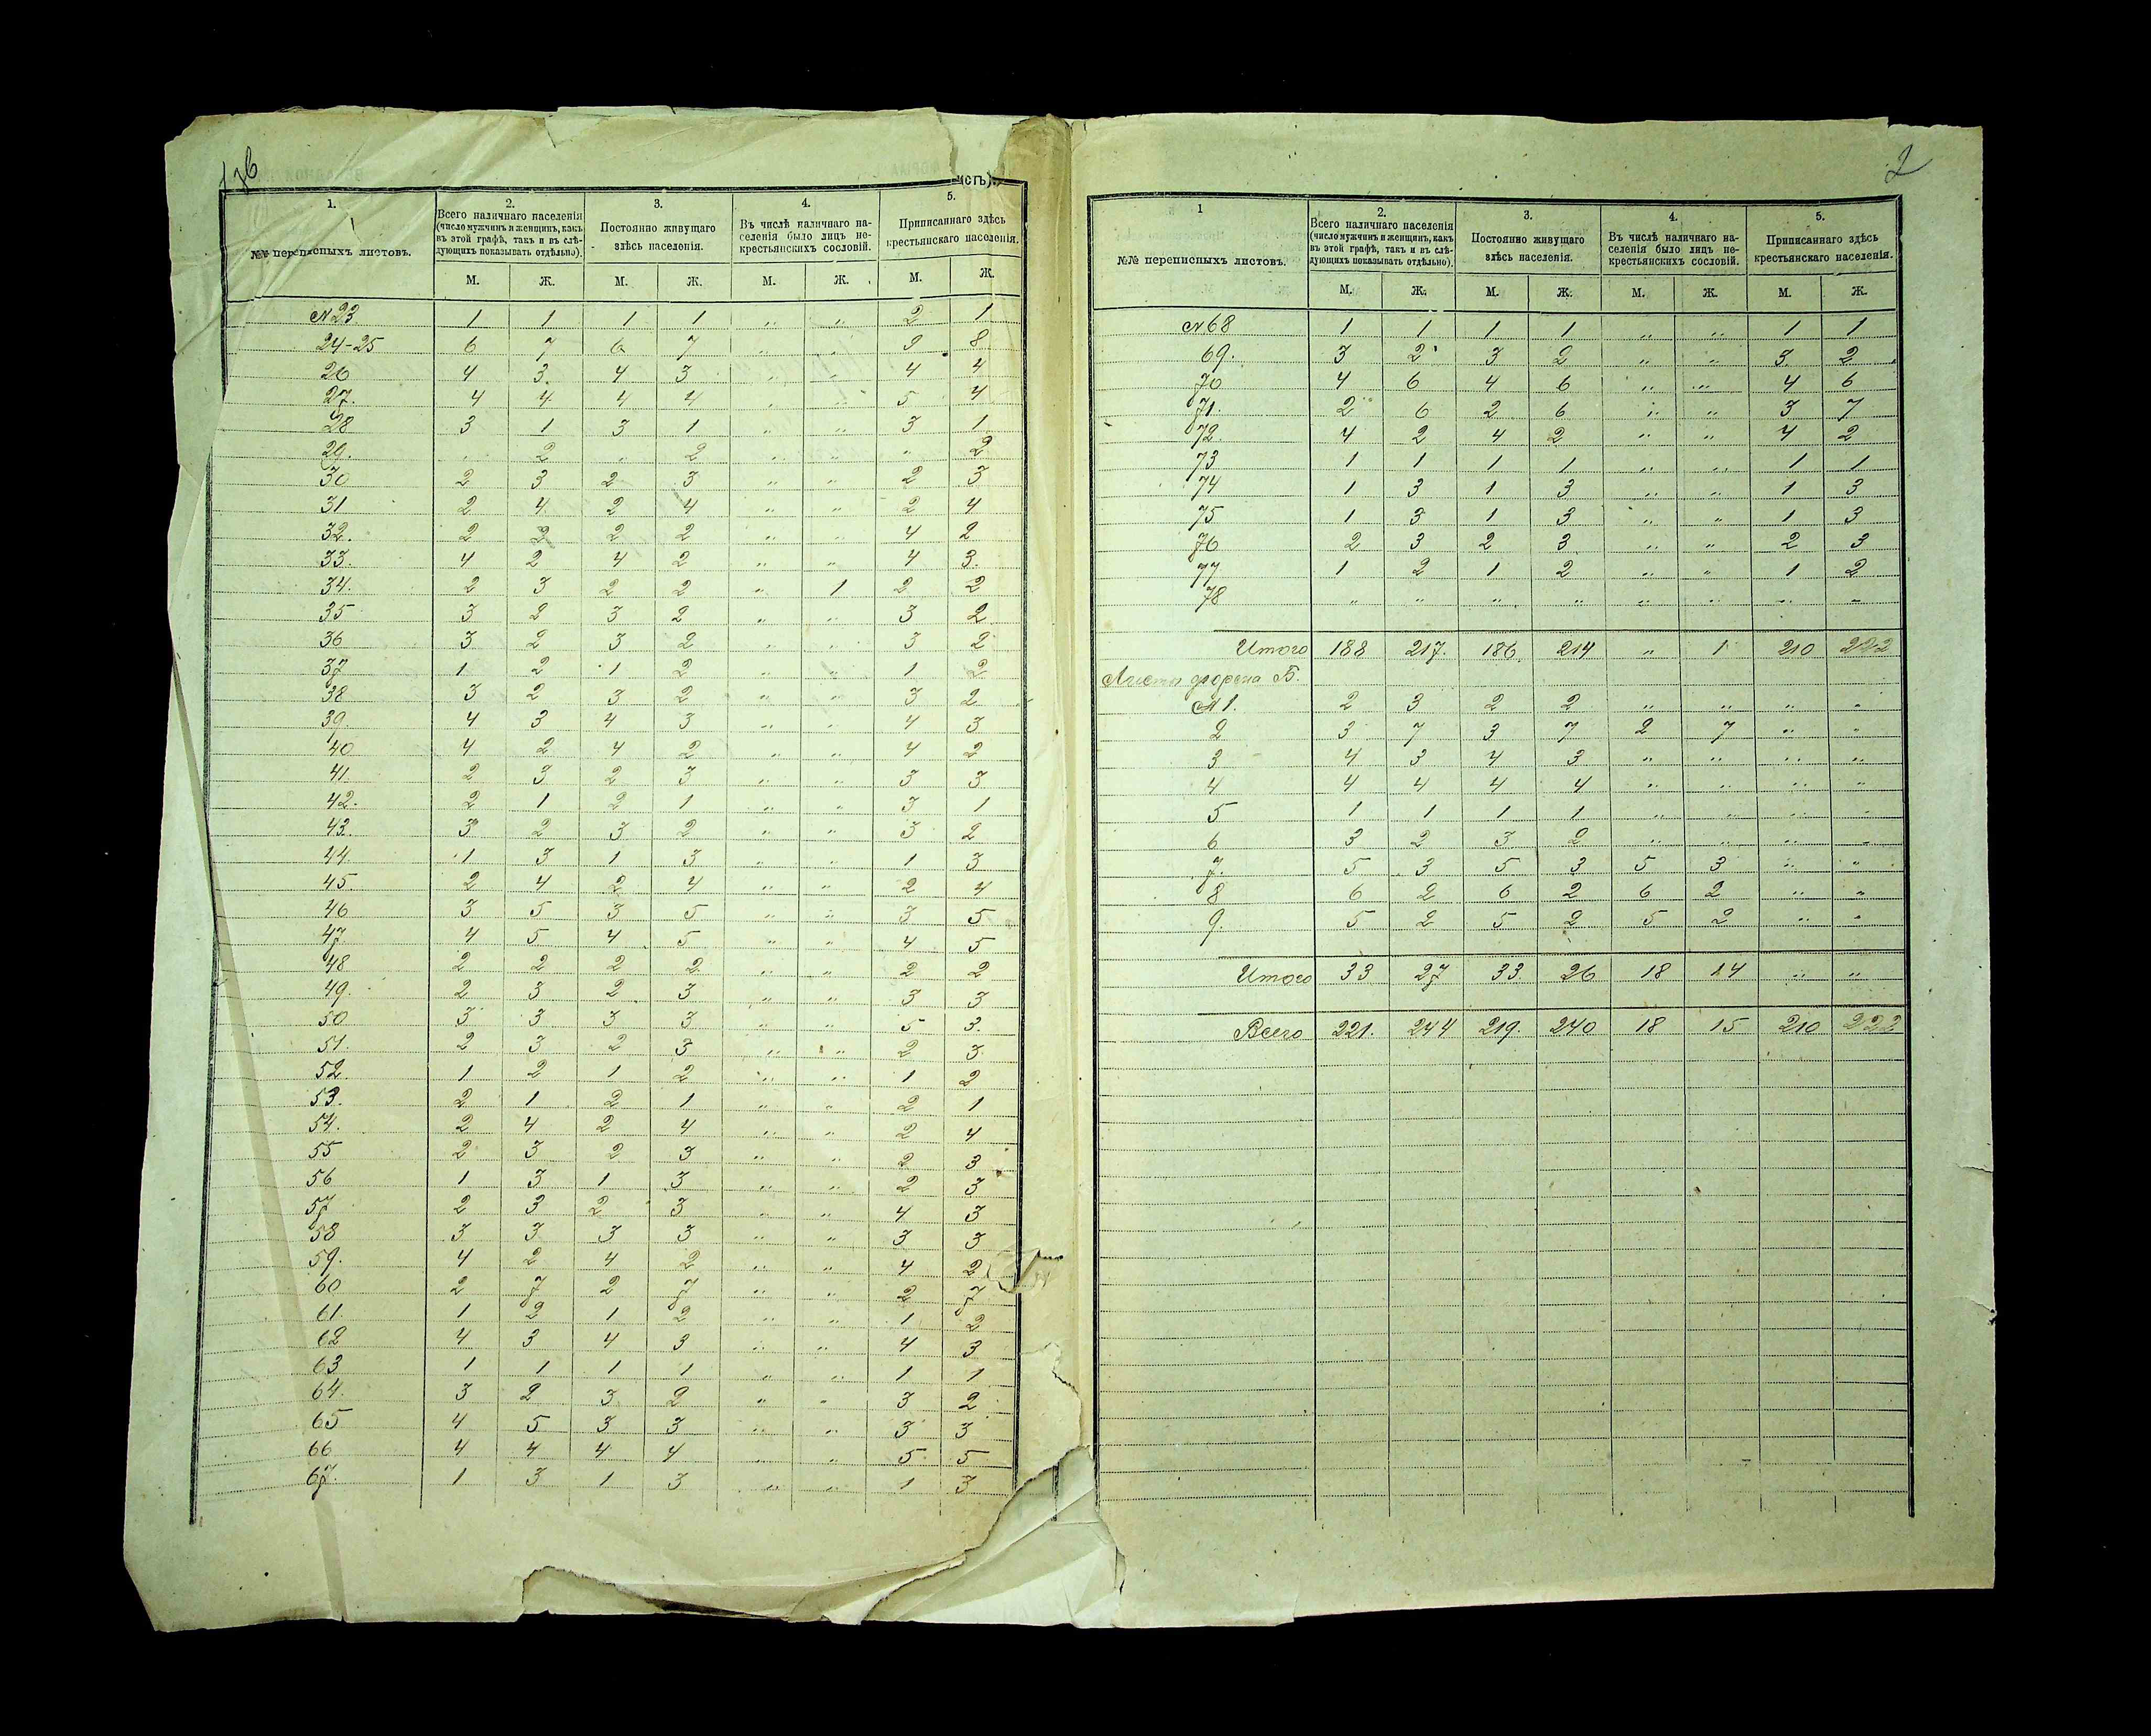 истъ).
1. 2. 3. 4. 5.
№№ переписныхъ листовъ.
Всего наличнаго населенія
(число мужчинъ и женщинъ, какъ
въ этой графѣ, такъ и въ слѣ-
дующихъ показывать отдѣльно).
Постоянно живущаго
здѣсь населенія.
Въ числѣ наличнаго на-
селенія было лицъ не-
крестьянскихъ сословій.
Приписаннаго здѣсь
крестьянскаго населенія.
М. Ж. М. Ж. М. Ж. М. Ж.
№ 23 1 1 1 1 „ „ 2 1
24-25 6 7 6 7 „ „ 9 8
26 4 3 4 3 „ „ 4 4
27. 4 4 4 4 „ „ 5 4
28 3 1 3 1 „ „ 3 1
29. „ 2 „ 2 „ „ „ 2
30 2 3 2 3 „ „ 2 3
31 2 4 2 4 „ „ 2 4
32. 2 2 2 2 „ „ 4 2
33. 4 2 4 2 „ „ 4 3.
34. 2 3 2 2 „ 1 2 2
35 3 2 3 2 „ „ 3 2
36 3 2 3 2 „ „ 3 2
37 1 2 1 2 „ „ 1 2
38 3 2 3 2 „ „ 3 2
39. 4 3 4 3 „ „ 4 3
40 4 2 4 2 „ „ 4 2
41. 2 3 2 3 „ „ 3 3
42. 2 1 2 1 „ „ 3 1
43. 3 2 3 2 „ „ 3 2
44. 1 3 1 3 „ „ 1 3
45. 2 4 2 4 „ „ 2 4
46 3 5 3 5 „ „ 3 5
47 4 5 4 5 „ „ 4 5
48 2 2 2 2 „ „ 2 2
49. 2 3 2 3 „ „ 3 3
50 3 3 3 3 „ „ 5 3.
51. 2 3 2 3 „ „ 2 3
52. 1 2 1 2 „ „ 1 2
53. 2 1 2 1 „ „ 2 1
54. 2 4 2 4 „ „ 2 4
55 2 3 2 3 „ „ 2 3
56 1 3 1 3 „ „ 2 3
57 2 3 2 3 „ „ 4 3
58 3 3 3 3 „ „ 3 3
59. 4 2 4 2 „ „ 4 2
60 2 7 2 7 „ „ 2 7
61. 1 2 1 2 „ „ 1 2
62 4 3 4 3 „ „ 4 3
63 1 1 1 1 „ „ 1 1
64. 3 2 3 2 „ „ 3 2
65 4 5 3 3 „ „ 3 3
66 4 4 4 4 „ „ 5 5
67. 1 3 1 3 „ „ 1 3
2
1 2. 3. 4. 5.
№№ переписныхъ листовъ.
Всего наличнаго населенія
(число мужчинъ и женщинъ, какъ
въ этой графѣ, такъ и въ слѣ-
дующихъ показывать отдѣльно).
Постоянно живущаго
здѣсь населенія.
Въ числѣ наличнаго на-
селенія было лицъ не-
крестьянскихъ сословій.
Приписаннаго здѣсь
крестьянскаго населенія.
М. Ж. М. Ж. М. Ж. М. Ж.
№ 68 1 1 1 1 „ „ 1 1
69. 3 2 3 2 „ „ 3 2
70 4 6 4 6 „ „ 4 6
71. 2 6 2 6 „ „ 3 7
72. 4 2 4 2 „ „ 4 2
73 1 1 1 1 „ „ 1 1
74 1 3 1 3 „ „ 1 3
75 1 3 1 3 „ „ 1 3
76 2 3 2 3 „ „ 2 3
77 1 2 1 2 „ „ 1 2
78 „ „ „ „ „ „ „ „
Итого 188 217. 186. 214 „ 1 210 222
Листы форма Б.
№ 1. 2 3 2 2 „ „ „ „
2 3 7 3 7 2 7 „ „
3 4 3 4 3 „ „ „ „
4 4 4 4 4 „ „ „ „
5 1 1 1 1 „ „ „ „
6 3 2 3 2 „ „ „ „
7. 5 3 5 3 5 3 „ „
8 6 2 6 2 6 2 „ „
9. 5 2 5 2 5 2 „ „
Итого 33 27 33. 26 18 14 „ „
Всего 221. 244 219. 240 18 15 210 222